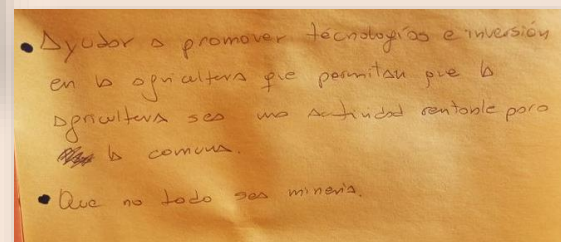 • Ayudar a promover técnologías e inversión
en la agricultura que permitan que la
agricultura sea una actividad rentable para
la comuna.
• Que no todo sea minería.